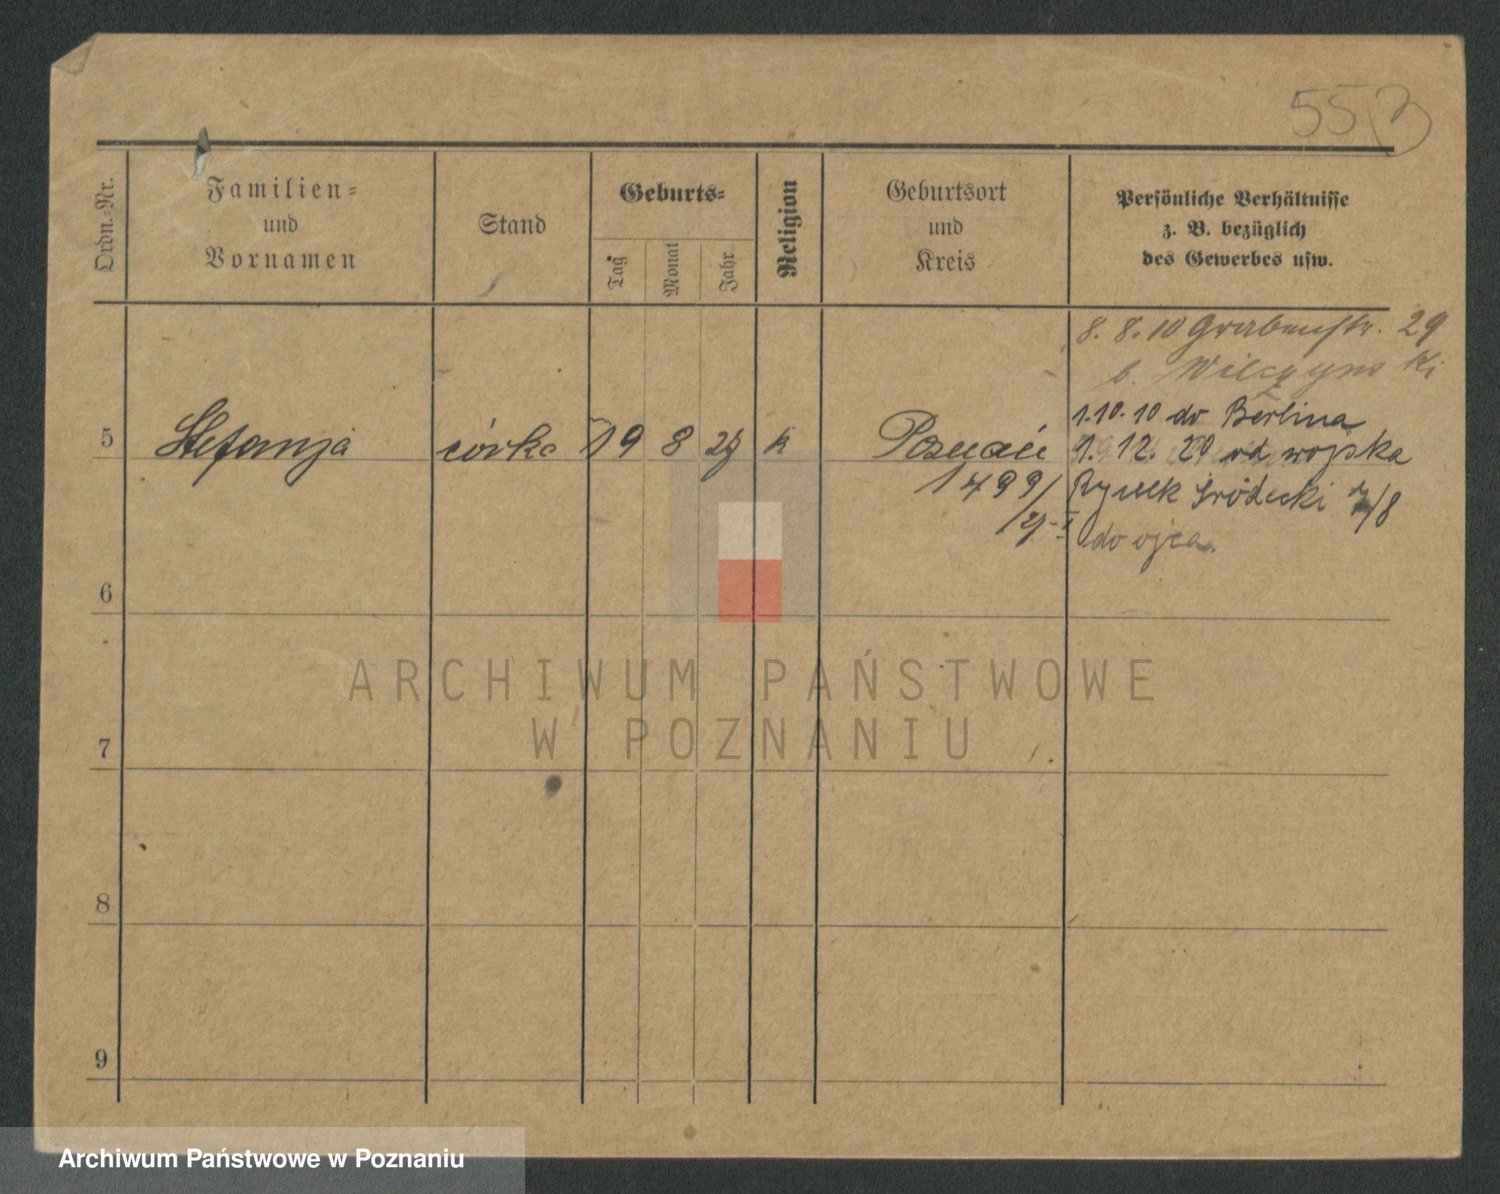 553
Ordn.-Nr.
Familien-
und
Vornamen
Stand
Geburts-
Tag
Monat
Jahr
Religion
Geburtsort
und
Kreis
Persönliche Verhältnisse
z. B. bezüglich
des Gewerbes usw.
8. 8. 10 Grabenstr. 29
b. Wilczynski
1. 10. 10 do Berlina
5 Stefanja córka 19 8 k Poznań 1. 12. 20 od wojska
1499/ Rynek Śródecki 7/8
do ojca.
6
7
8
9
ARCHIWUM PAŃSTWOWE
W POZNANIU
Archiwum Państwowe w Poznaniu